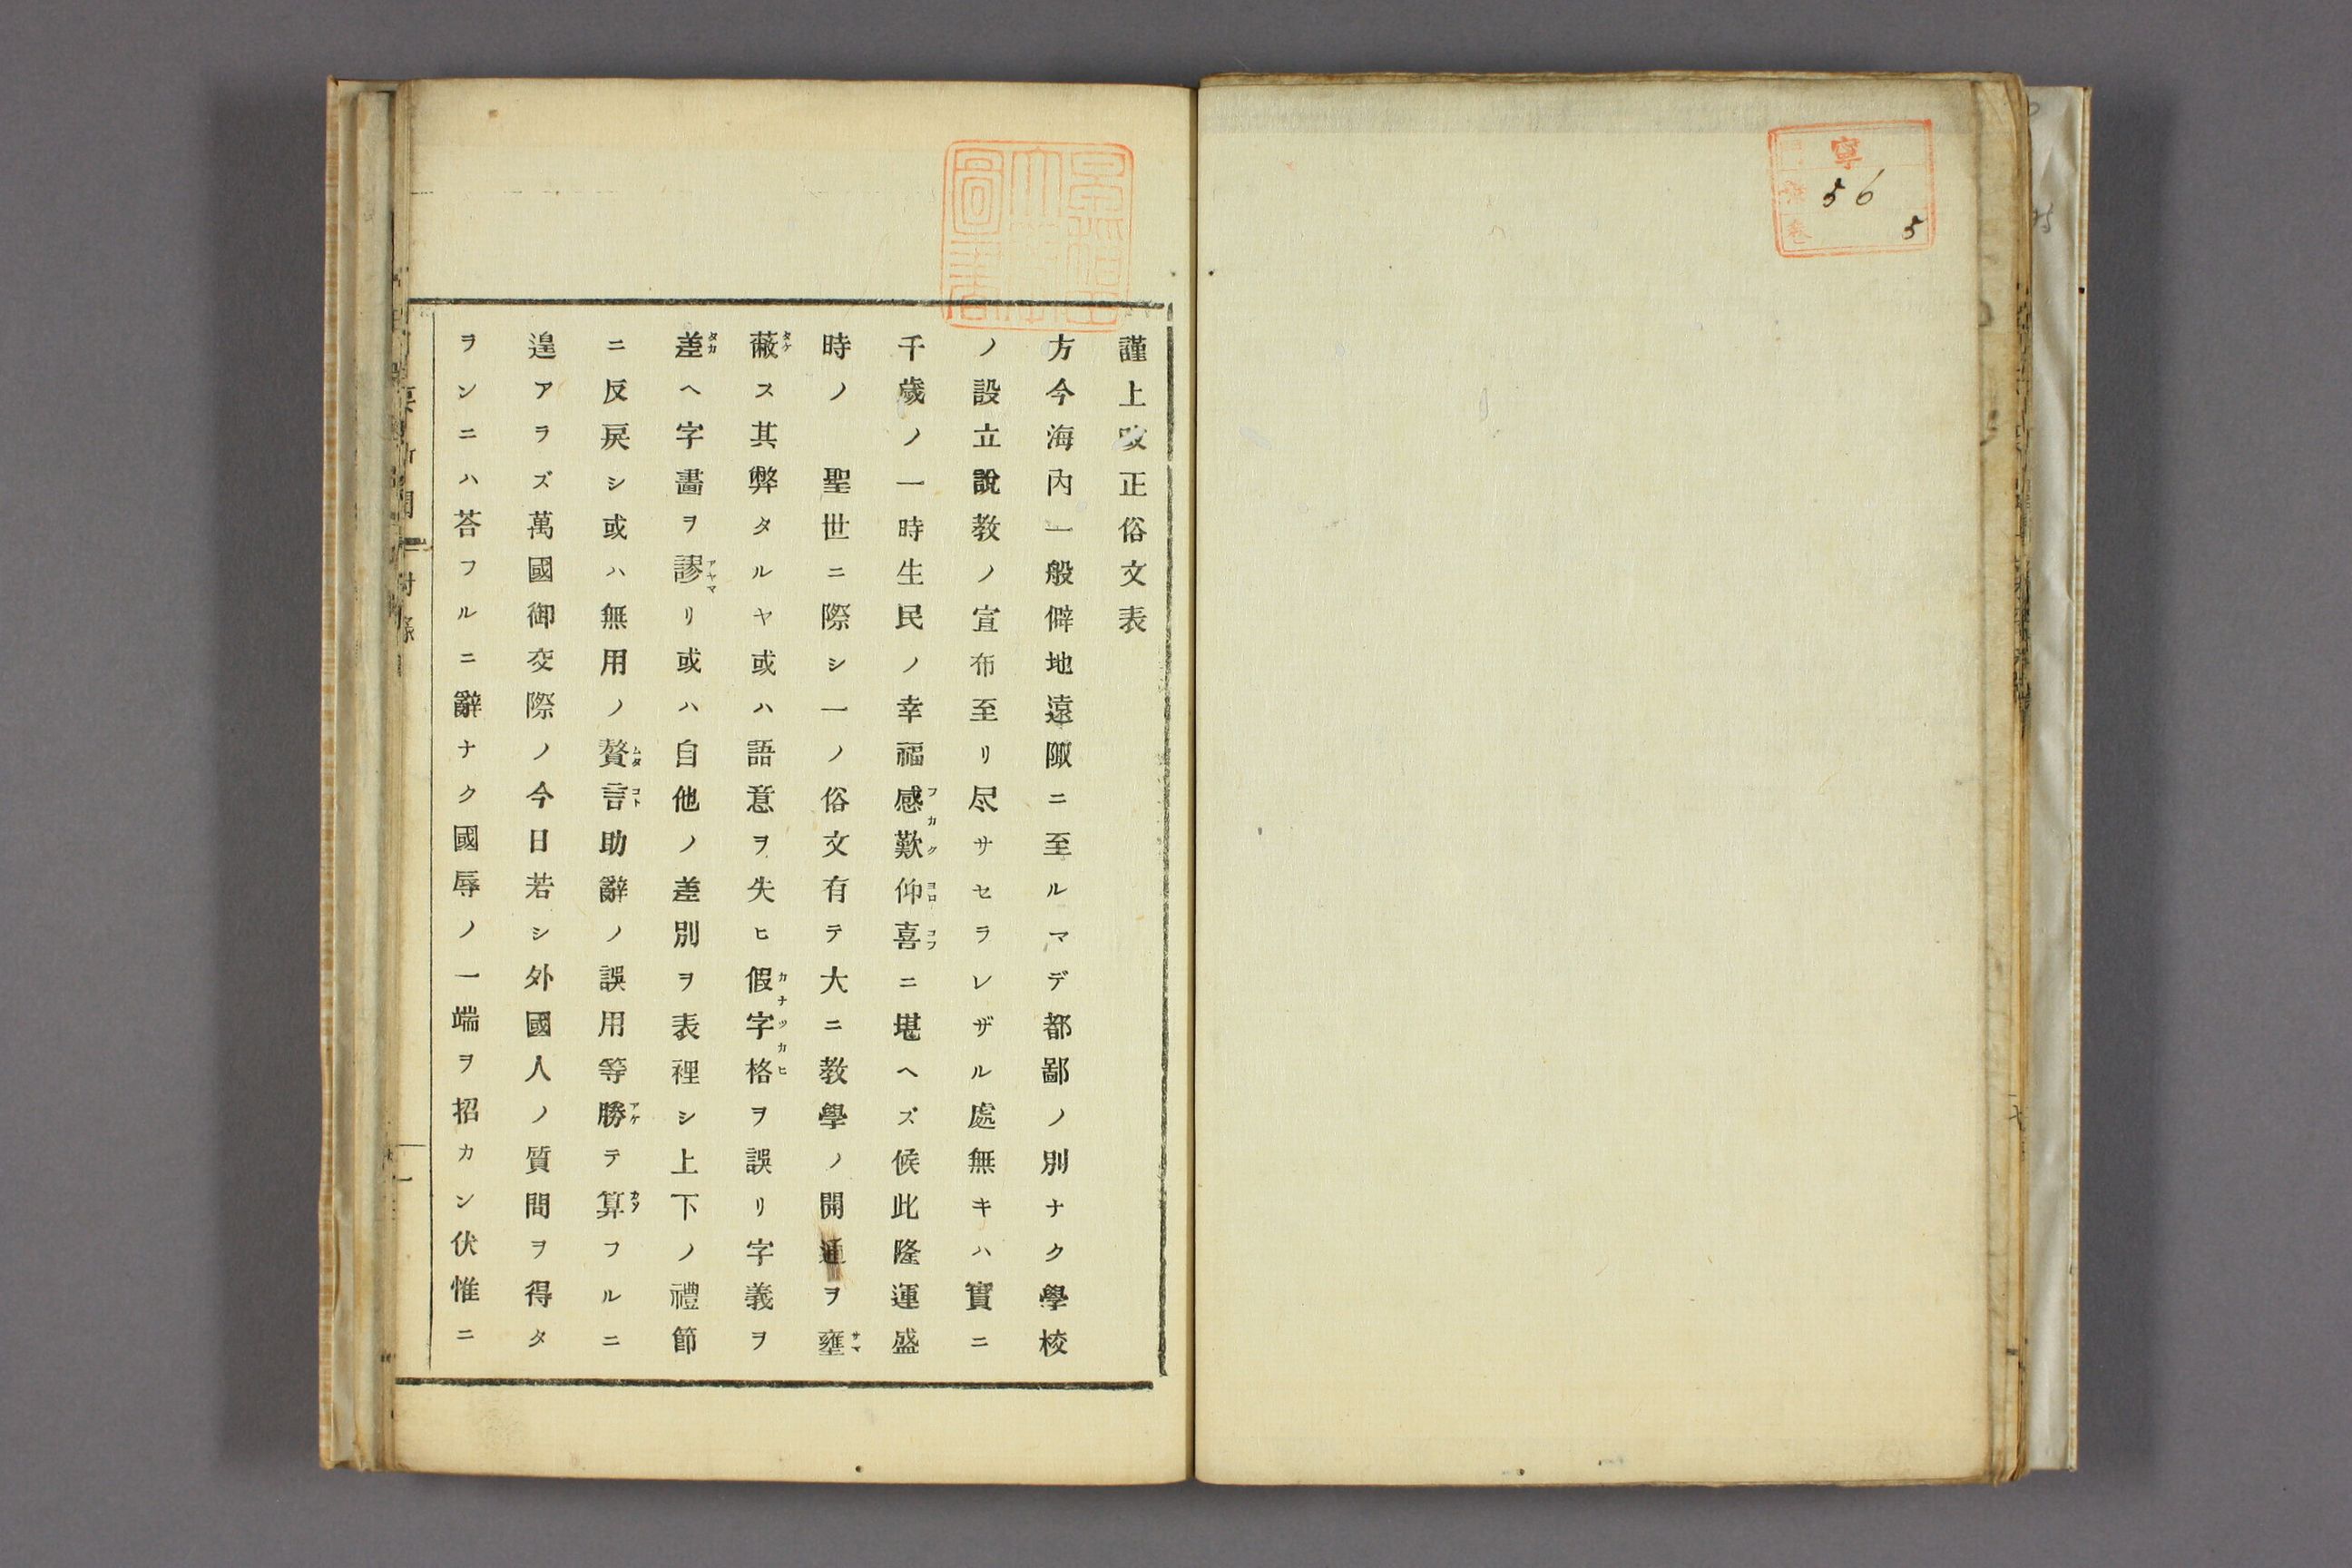 寧
56
5
謹上改正俗文表
方今海内一般僻地遠陬ニ至ルマデ都鄙ノ別ナク學校
ノ設立說教ノ宣布至リ尽サセラレザル處無キハ實ニ
千歳ノ一時生民ノ幸福感歎仰喜ニ堪ヘズ候此隆運盛
時ノ 聖世ニ際シ一ノ俗文有テ大ニ教學ノ開通ヲ壅
蔽ス其弊タルヤ或ハ語意ヲ失ヒ假字格ヲ誤リ字義ヲ
差ヘ字畵ヲ謬リ或ハ自他ノ差別ヲ表裡シ上下ノ禮節
ニ反戾シ或ハ無用ノ贅言助辭ノ誤用等勝テ算フルニ
遑アラズ萬國御交際ノ今日若シ外國人ノ質問ヲ得タ
ランニハ荅フルニ辭ナク國辱ノ一端ヲ招カン伏惟ニ